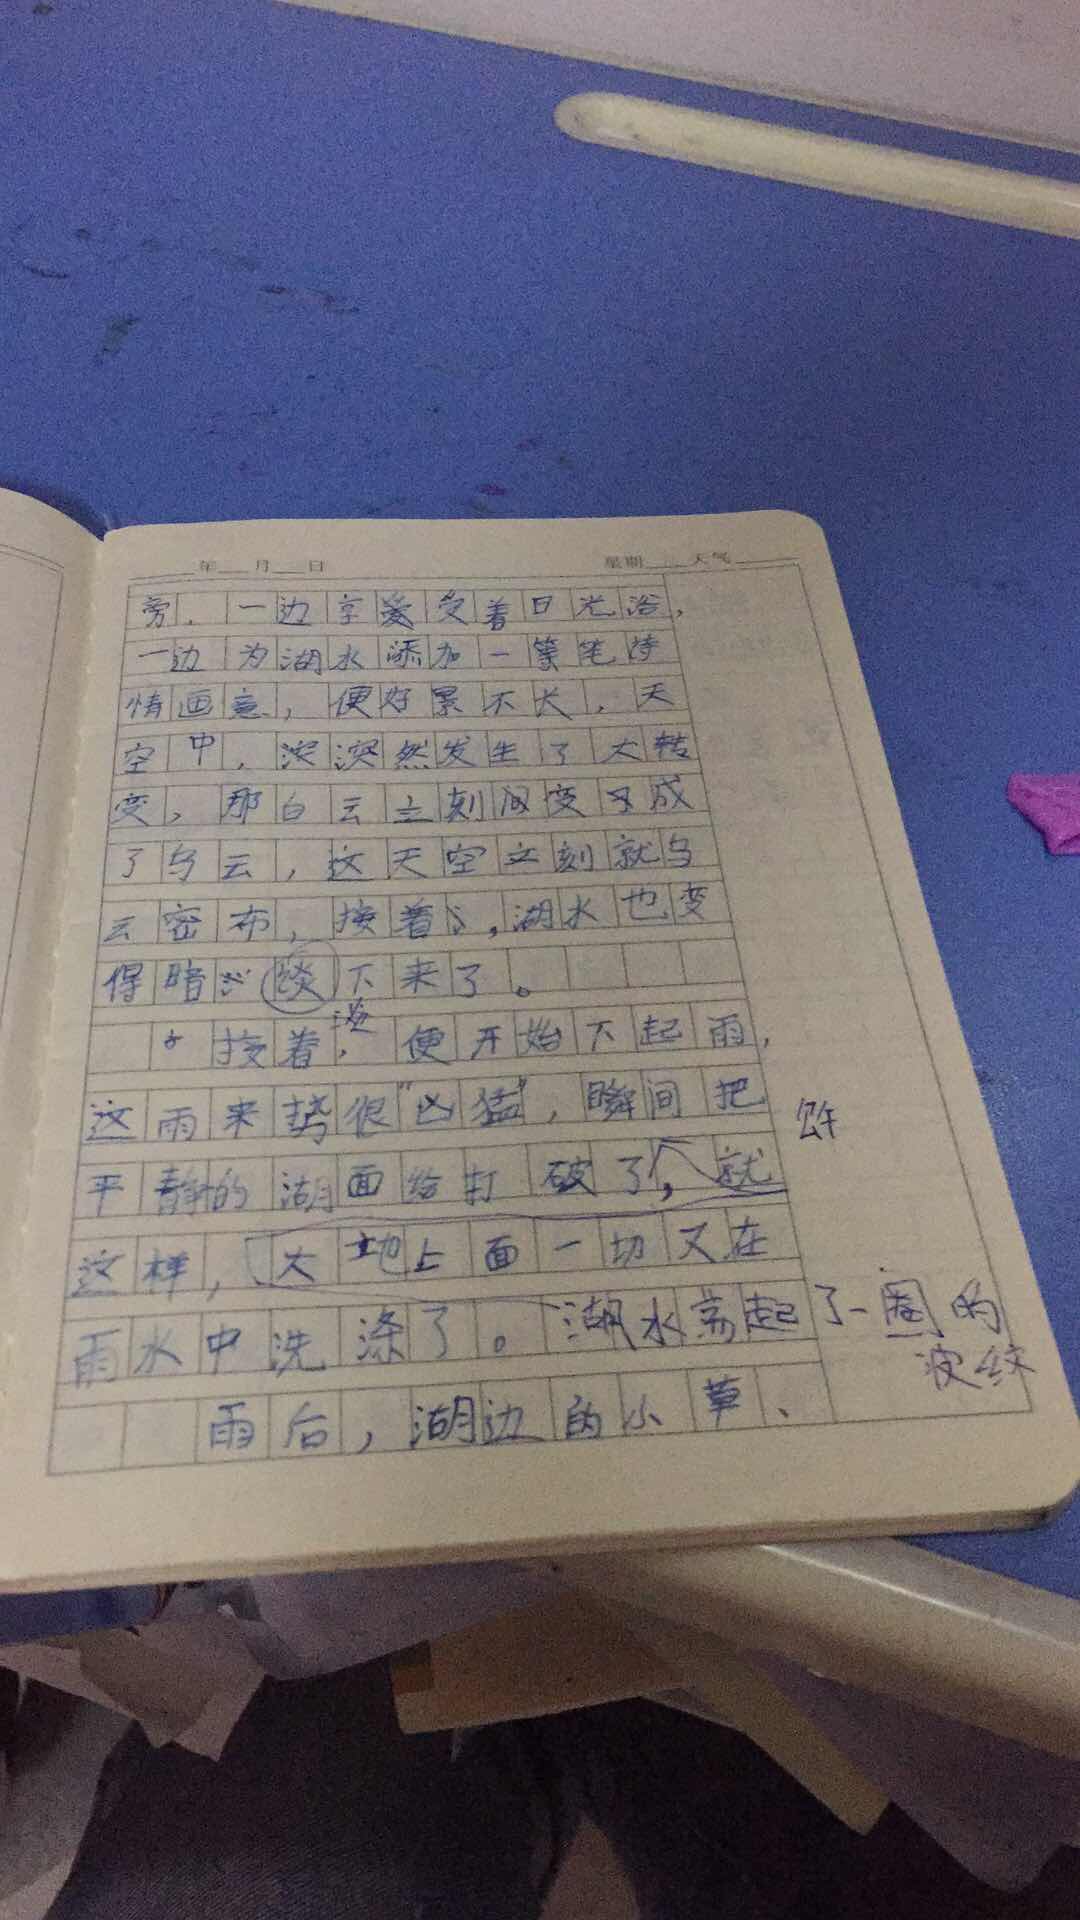 年 月 日 星期 天气
旁,一边享受着日光浴,
一边为湖水添加一笔诗
情画意,便好景不长,天
空中,突然发生了大转
变,那白云立刻间变成
了乌云,这天空立刻就乌
云密布,接着,湖水也变
得暗淡下来了。
接着,便开始下起雨,
这雨来势很"凶猛",瞬间把
平静的湖面给打破了,就
这样,大地上面一切又在
雨水中洗涤了。湖水荡起了一圈的
波纹
雨后,湖边的小草、